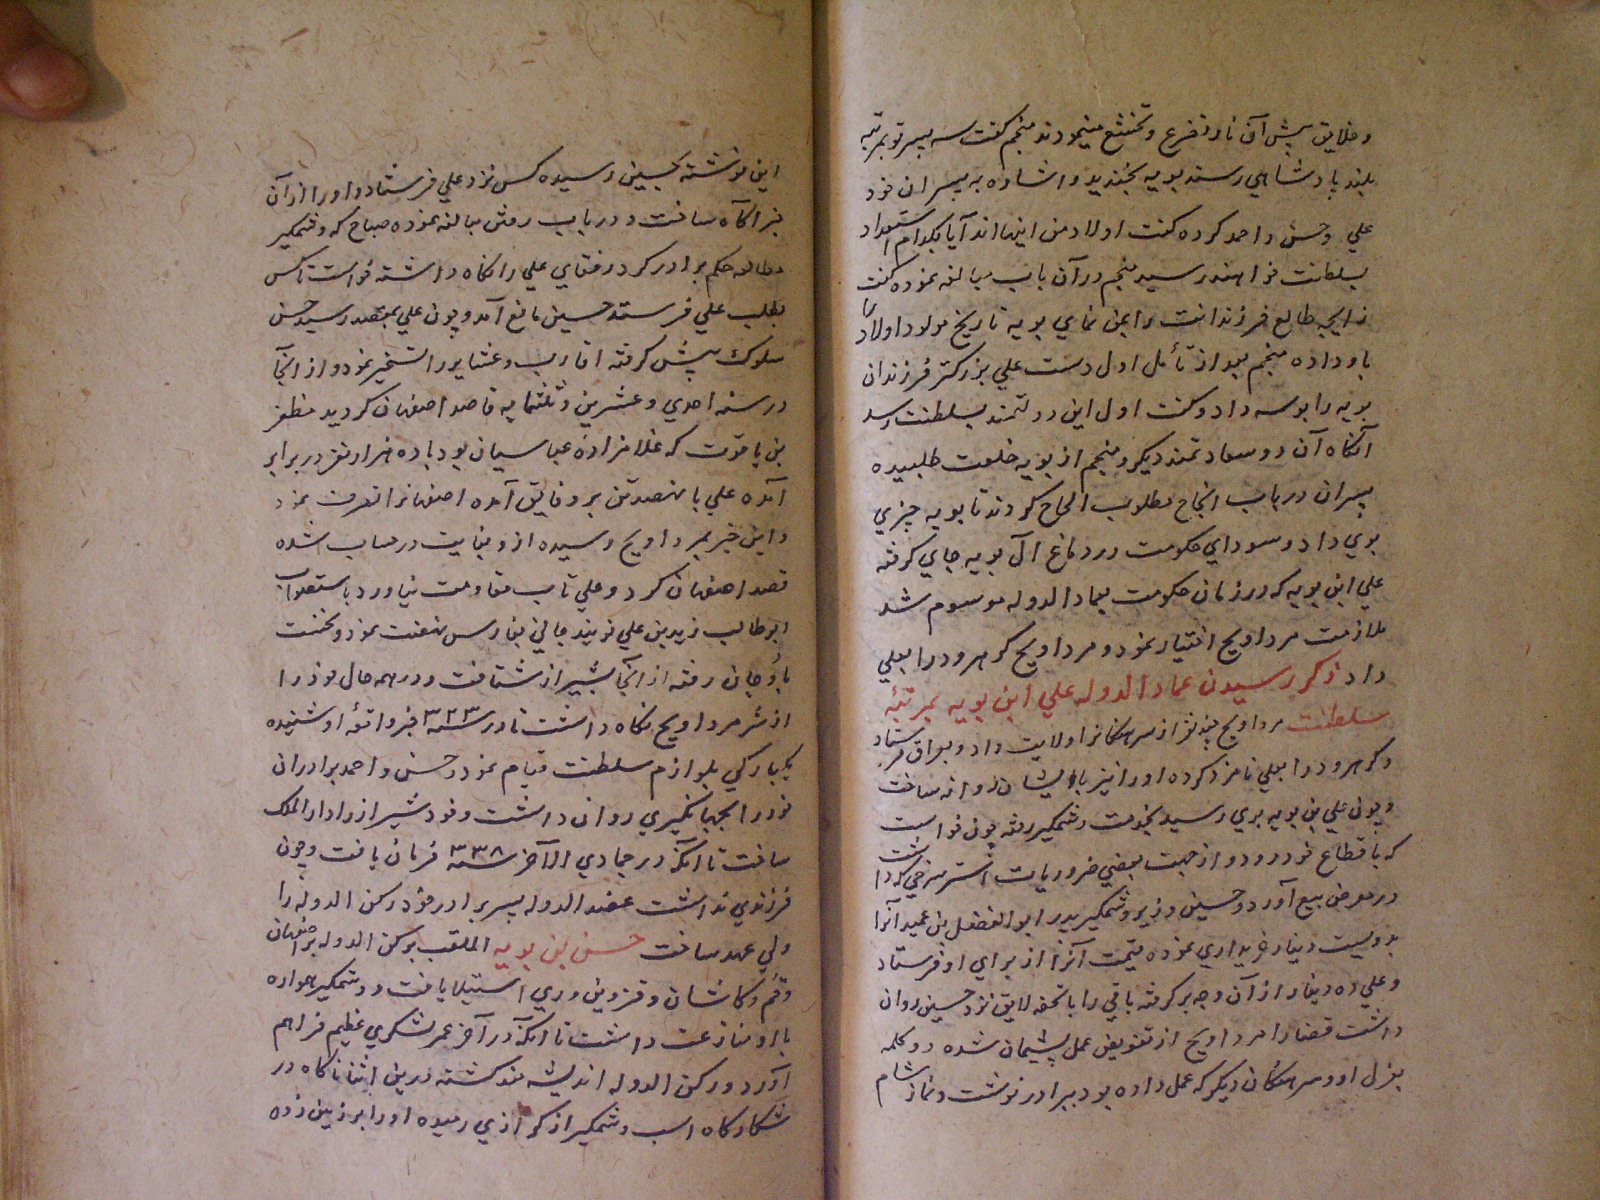 و خلایق پیش آن نار تضرع و تخشع مینمودند منجم کفت سه پسر تو بمرتبه
بلند پادشاهی رسند بویه بخندید و اشاره به پسران خود
علی و حسن و احمد کرده کفت اولاد من اینها اند آیا بکدام استعداد
بسلطنت خواهند رسید منجم در آن باب مبالغه نموده کفت
زایچه طالع فرزندانت را بمن نمای بویه تاریخ مولاد اولاد
باو داده منجم بعد از تأمل اول دست علی بزرکتر فرزندان
بویه را بوسه داد و کفت اول این دولتمند بسلطنت رسد
آنکاه آن دو سعادتمند دیکر و منجم از بویه خلعت طلبیده
پسران در باب انجاح مطلوب الحاح کردند تا بویه چیزی
بوی داد و سودای حکومت در دماغ آل بویه جای کرفته
علی ابن بویه که در زمان حکومت بعماد الدوله موسوم شد
ملازمت مرداویج اختیار نمود و مرداویج کرهرود را بعلی
داد ذکر رسیدن عماد الدوله علی ابن بویه بمرتبهٔ
سلطنت مرداویج چند نفر از سرهنکانرا ولایت داد و بعراق فرستاد
و کرهرود را بعلی نامزد کرده او را نیز با ایشان روانه ساخت
و چون علی بن بویه بری رسید بخدمت وشمکیر رفته چون خواست
که باقطاع خود رود و از جهت بعضی ضروریات استر سرخی که داشت
در معرض بیع آورد و حسین وزیر وشمکیر پدر ابو الفضل بن عمید آنرا
بدویست دینار خریداری نموده قیمت آنرا از برای او فرستاد
و علی ده دینار از آن وجه برکرفته باقی را با تحفه لایق نزد حسین روان
داشت قضارا مرداویج از تفویض عمل پشیمان شده دو کلمه
بعزل او و سرهنکان دیکر که عمل داده بود ببرادر نوشت و نماز شام
این نوشته بحسین رسیده کس نزد علی فرستاد و او را از آن
خبر آکاه ساخت و در باب رفتن مبالغه نموده صباح که وشمکیر
مطالعه حکم برادر کرد رفقای علی را نکاه داشته خواست تا کس
بطلب علی فرستد حسین مانع آمد و چون علی بمقصد رسید حسن
سلوک پیش کرفته اقارب و عشایر را تسخیر نمود و از آنجا
در سنه احدی و عشرین و ثلثمایه قاصد اصفهان کردید مظفر
بن یاقوت که غلامزاده عباسیان بود با ده هزار نفر در برابر
آمده علی با نهصد تن برو فایق آمده اصفهانرا تصرف نمود
و این خبر بمرداویج رسیده ازو بغایت در حساب شده
قصد اصفهان کرد و علی تاب مقاومت نیاورد باستصواب
ابو طالب زید بن علی نوبندجانی بفارس نهضت نمود و نخست
رفته از آنجا بشیراز شتافت و در همه حال خود را
از شر مرداویج نکاه داشت تا در سنه ۳۲۳ خبر واقعهٔ او شنیده
یکبارکی بلوازم سلطنت قیام نمود و حسن و احمد برادران
خود را بجهانکیری روان داشت و خود شیراز را دار الملک
ساخت تا آنکه در جمادی الآخر سنه ۳۳۸ فرمان یافت و چون
فرزندی نداشت عضد الدوله پسر برادر خود رکن الدوله را
ولی عهد ساخت حسن بن بویه الملقب برکن الدوله بر اصفهان
و قم و کاشان و قزوین و ری استیلا یافت و وشمکیر همواره
با او منازعت داشت تا آنکه در آخر عمر لشکری عظیم فراهم
آورد و رکن الدوله اندیشه مند کشته درین اثنا ناکاه در
شکارکاه اسب وشمکیر از کرازی رمیده او را بر زمین زده